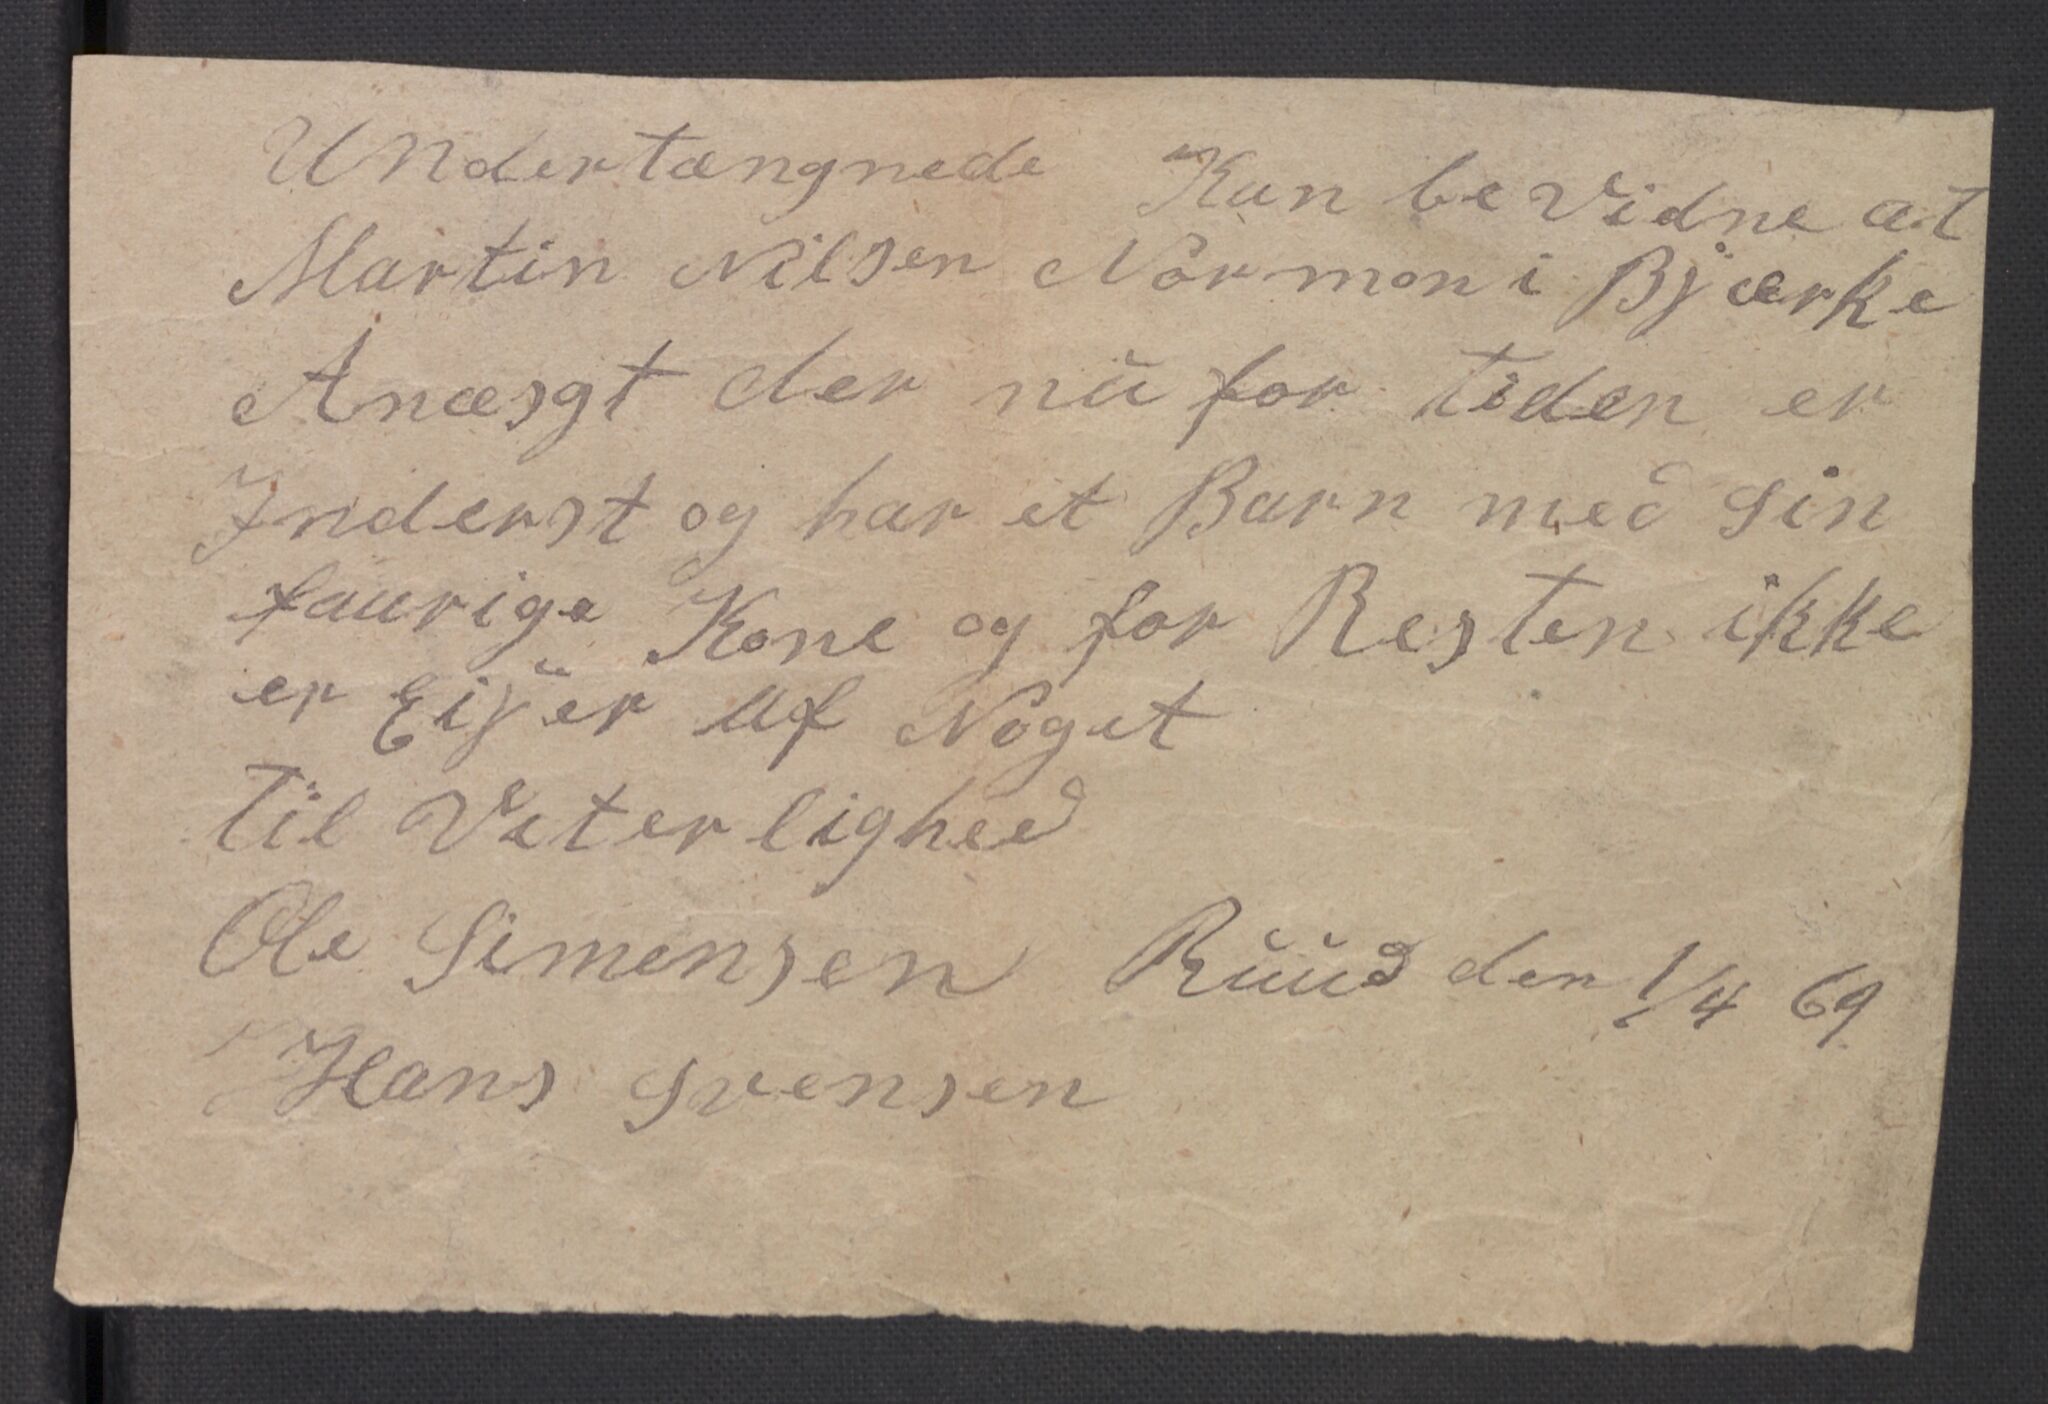 Undertængnede Kan be vidne at
Martin Nilsen Normon i Bjærke
Anæsgt der nu for tiden er
Inderst og har et Barn med sin
faurige Kone og for Resten ikke
er Eijer af Noget
til Veterlighed
Ole Simensen Ruud den 1/4 69
Hans Svensen